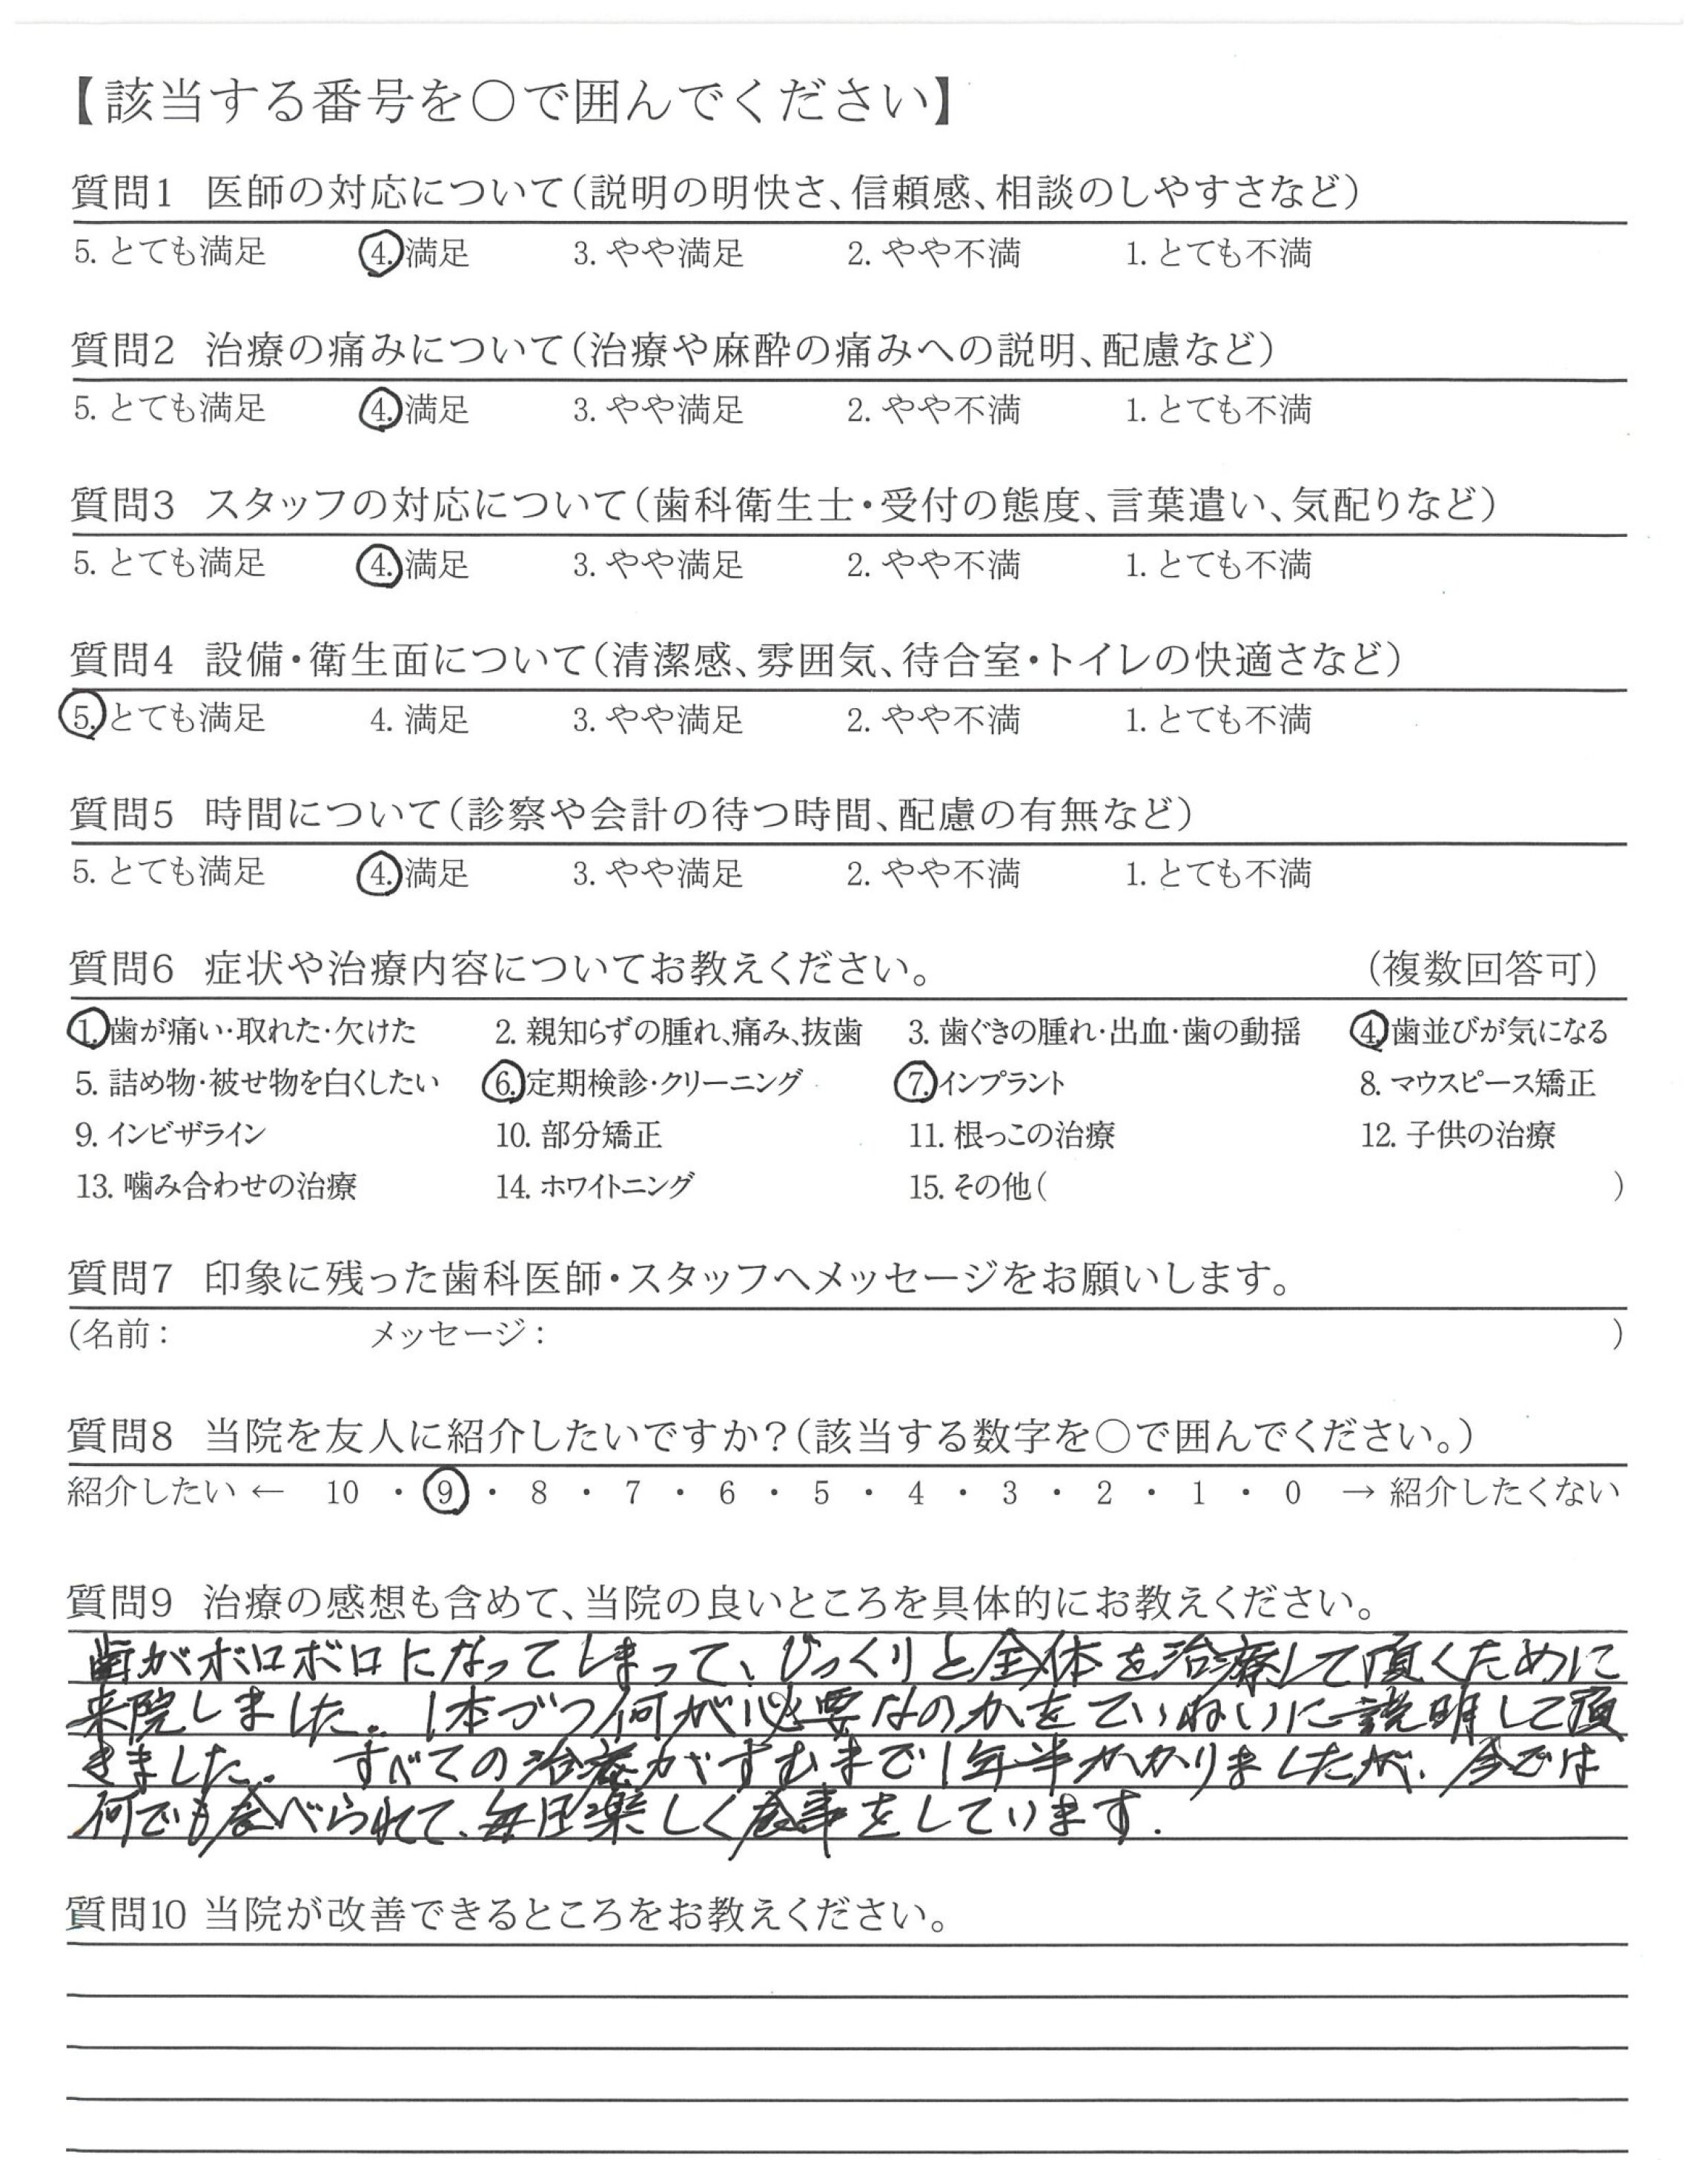 【該当する番号を〇で囲んでください】
質問1 医師の対応について(説明の明快さ、信頼感、相談のしやすさなど)
5. とても満足 4. 満足 3. やや満足 2. やや不満 1. とても不満
質問2 治療の痛みについて(治療や麻酔の痛みへの説明、配慮など)
5. とても満足 4. 満足 3. やや満足 2. やや不満 1. とても不満
質問3 スタッフの対応について(歯科衛生士・受付の態度、言葉遣い、気配りなど)
5. とても満足 4. 満足 3. やや満足 2. やや不満 1. とても不満
質問4 設備・衛生面について(清潔感、雰囲気、待合室・トイレの快適さなど)
5. とても満足 4. 満足 3. やや満足 2. やや不満 1. とても不満
質問5 時間について(診察や会計の待つ時間、配慮の有無など)
5. とても満足 4. 満足 3. やや満足 2. やや不満 1. とても不満
質問6 症状や治療内容についてお教えください。 (複数回答可)
1. 歯が痛い・取れた・欠けた 2. 親知らずの腫れ、痛み、抜歯 3. 歯ぐきの腫れ・出血・歯の動揺 4. 歯並びが気になる
5. 詰め物・被せ物を白くしたい 6. 定期検診・クリーニング 7. インプラント 8. マウスピース矯正
9. インビザライン 10. 部分矯正 11. 根っこの治療 12. 子供の治療
13. 噛み合わせの治療 14. ホワイトニング 15. その他( )
質問7 印象に残った歯科医師・スタッフへメッセージをお願いします。
(名前: メッセージ: )
質問8 当院を友人に紹介したいですか?(該当する数字を〇で囲んでください。)
紹介したい ← 10 ・ 9 ・ 8 ・ 7 ・ 6 ・ 5 ・ 4 ・ 3 ・ 2 ・ 1 ・ 0 → 紹介したくない
質問9 治療の感想も含めて、当院の良いところを具体的にお教えください。
歯がボロボロになってしまって、びっくりと全体を治療して頂くために
来院しました。1本づつ何が必要なのかをていねいに説明して頂
きました。 すべての治療がすむまで1年半かかりましたが、今では
何でも食べられて、毎日楽しく食事をしています.
質問10 当院が改善できるところをお教えください。